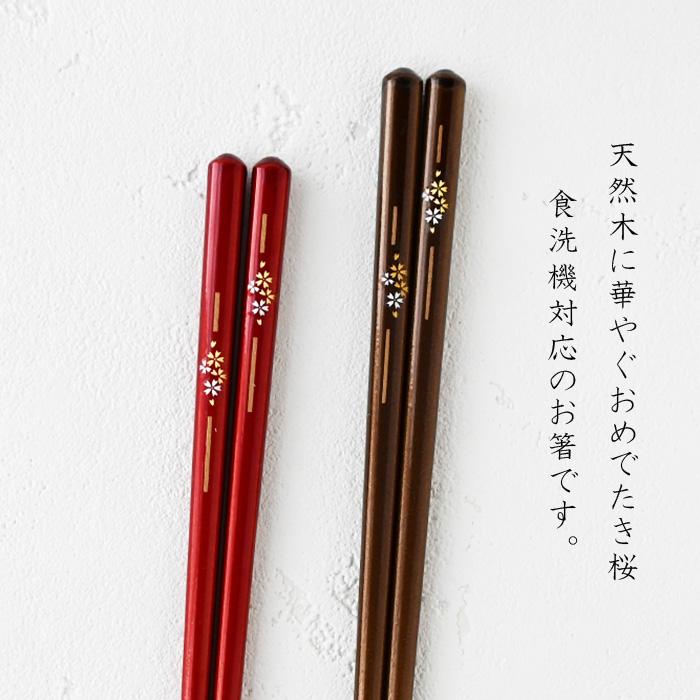 天然木に華やぐおめでたき桜
食洗機対応のお箸です。